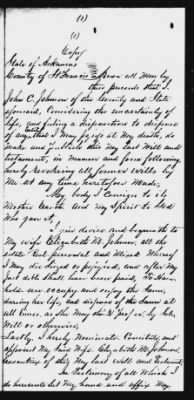 (1)
(1)
Copy
State of Arkansas
County of St Francis Know all Men by
these presents that I
John C. Johnson of the County and State
aforesaid, Considering the uncertainty of
life, and feeling a disposition to dispose
of any Estate I may possess at My death, do
Make and Publish this My Last Will and
testament, in Manner and form following,
hereby revoking all former wills by
Me at any time heretofore Made,
My Body I Consign to its
Mother Earth and My Spirit to God
Who gave it,
I give devise and bequeath to
My wife Elizabeth M Johnson, all the
estate Real personal and Mixed Whereof
I May die seized or possessed, and after My
just debts shall have been paid, To have
hold use occupy and enjoy the Same,
during her life, and dispose of the Same at
all times, as She May see by
Will or otherwise,
Lastly, I hereby Nominate Constitute and
appoint My Said Wife Elizabeth M Johnson
executrix of this My Last Will and testament
In Testimony of all Which I
do hereunto Set My hand and affix My